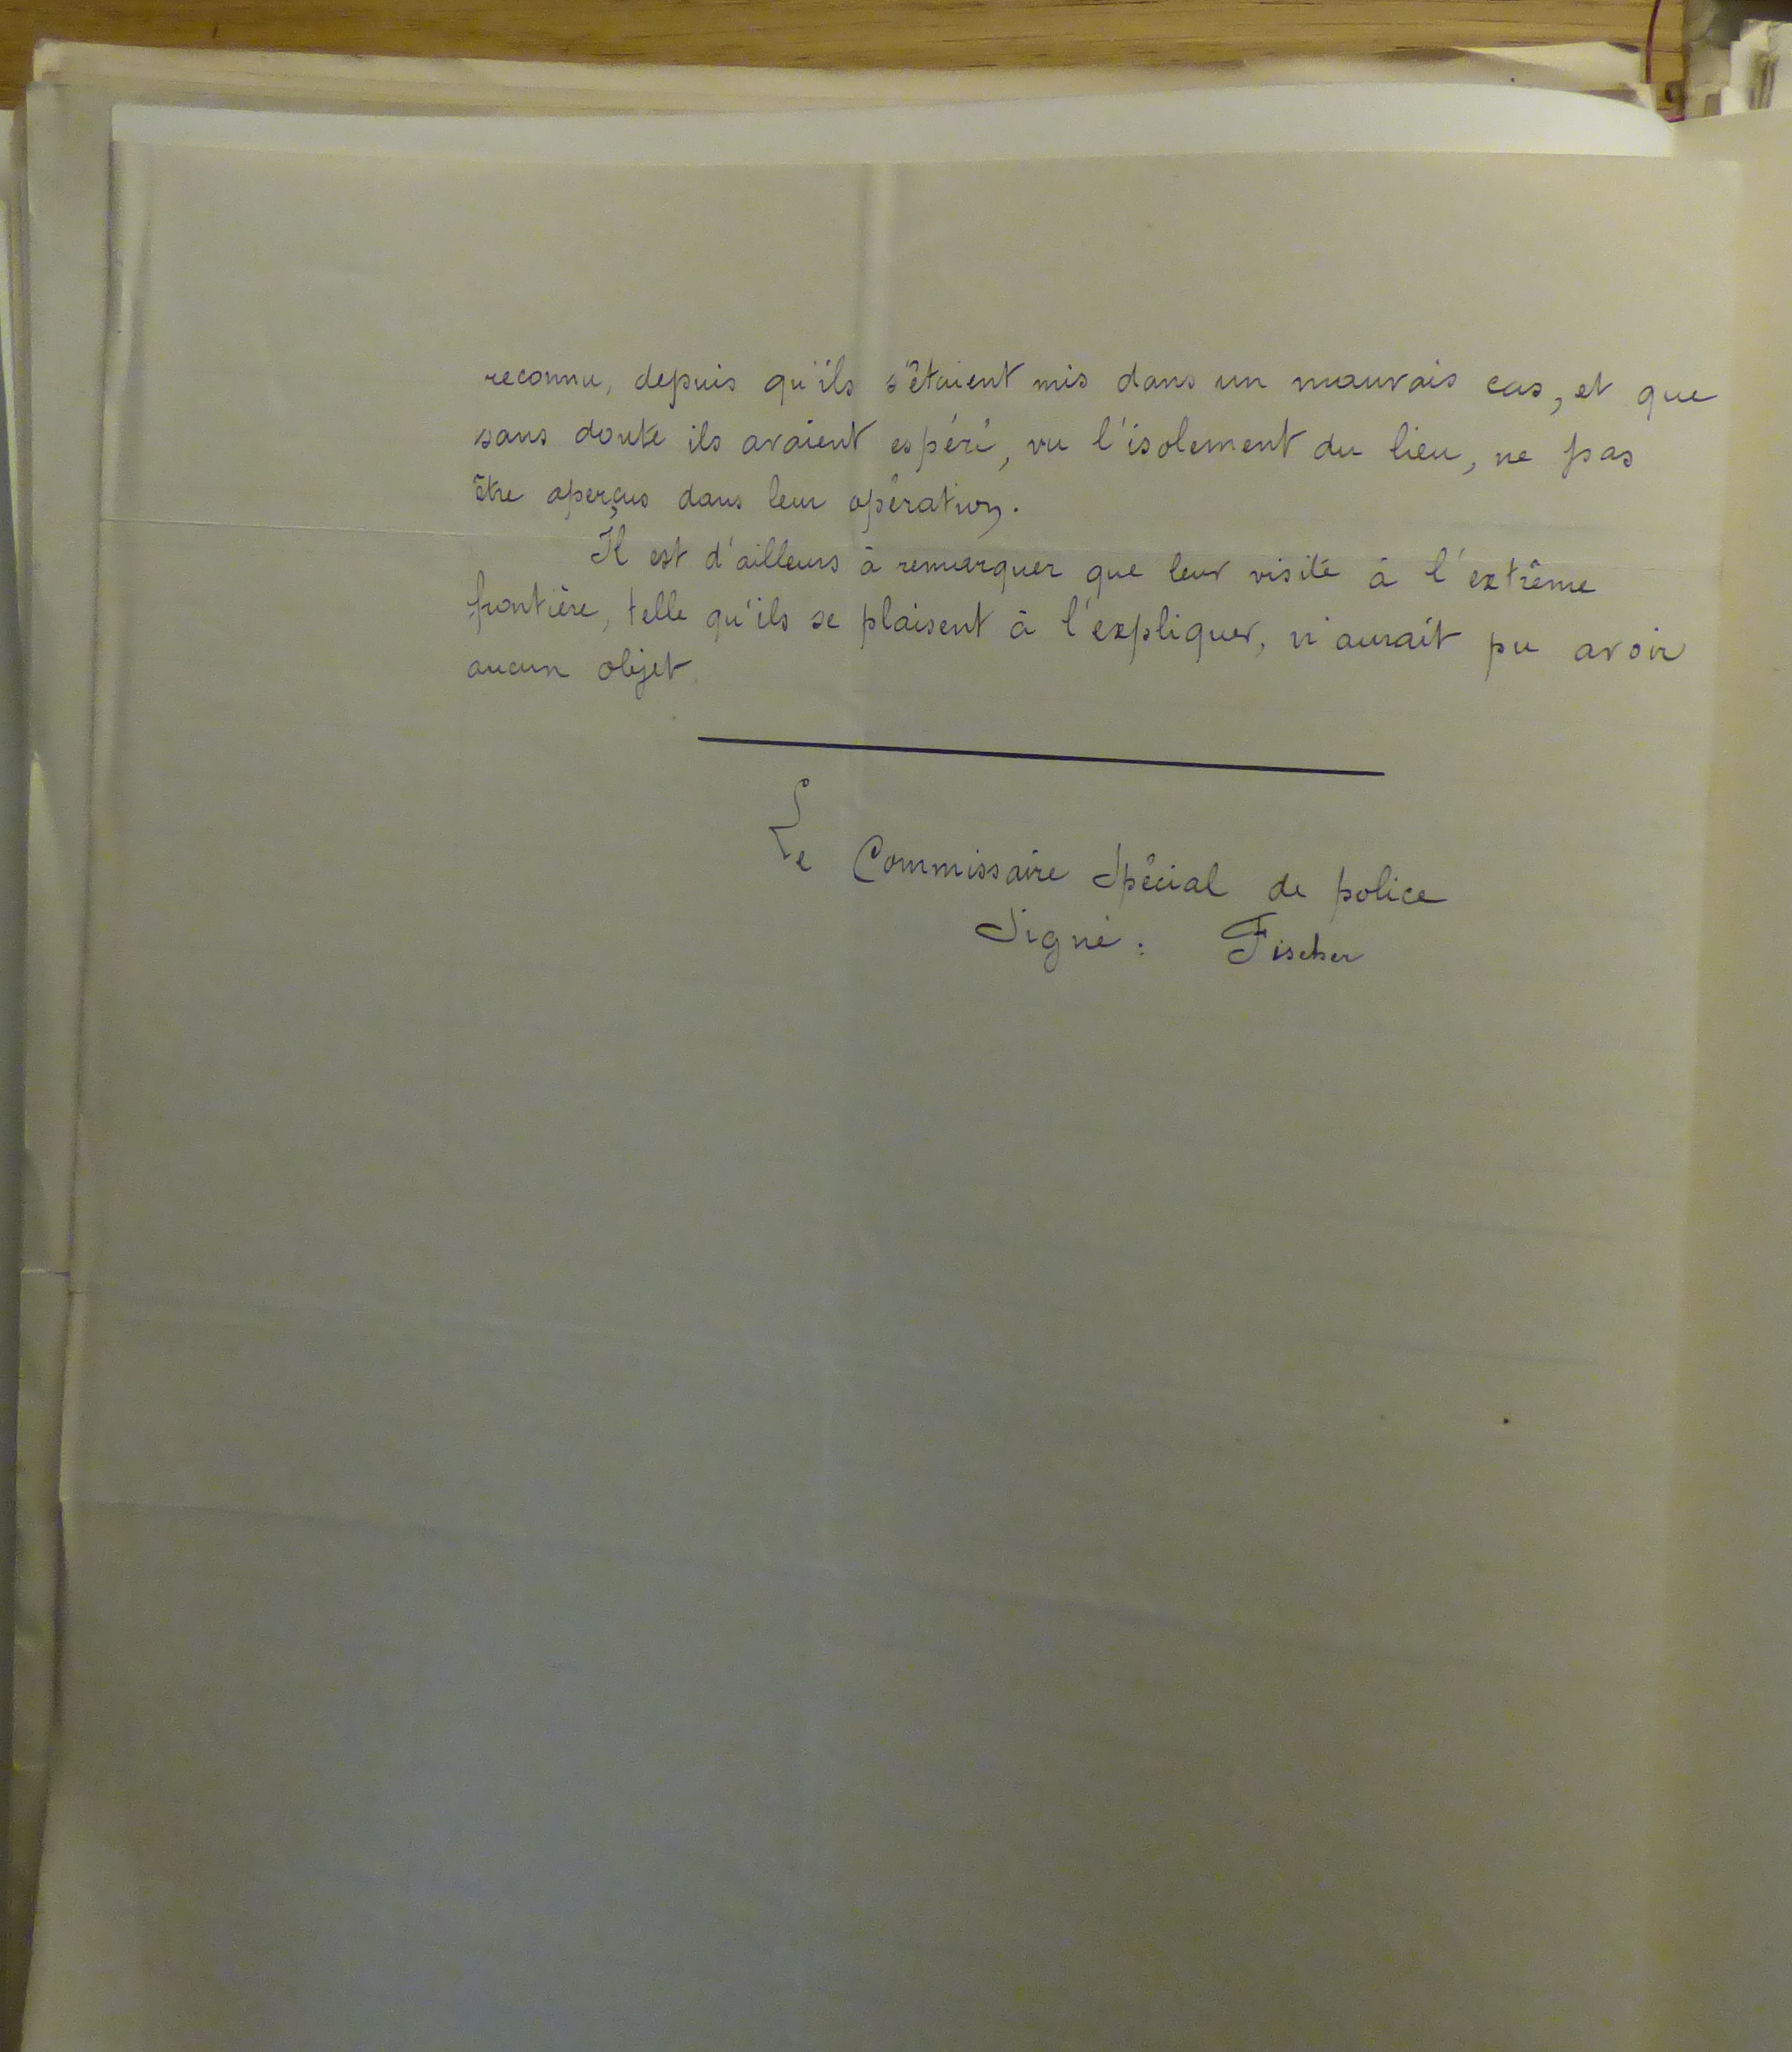 reconnu, depuis qu'ils s'étaient mis dans un mauvais cas, et que
sans doute ils avaient espéré, vu l'isolement du lieu, ne pas
être aperçus dans leur opération.
Il est d'ailleurs à remarquer que leur visite à l'extrême
frontière, telle qu'ils se plaisent à l'expliquer, n'aurait pu avoir
aucun objet.
Le Commissaire Spécial de police
Signé : Fischer